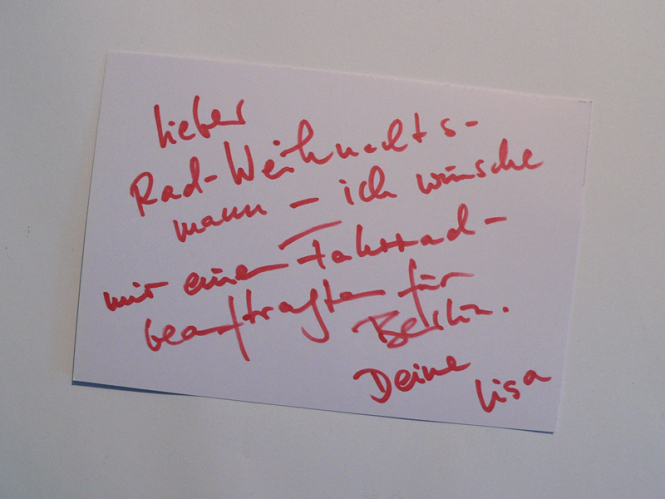 Lieber
Rad-Weihnachts-
mann – ich wünsche
mir einen Fahrrad-
beauftragten für
Berlin.
Deine Lisa